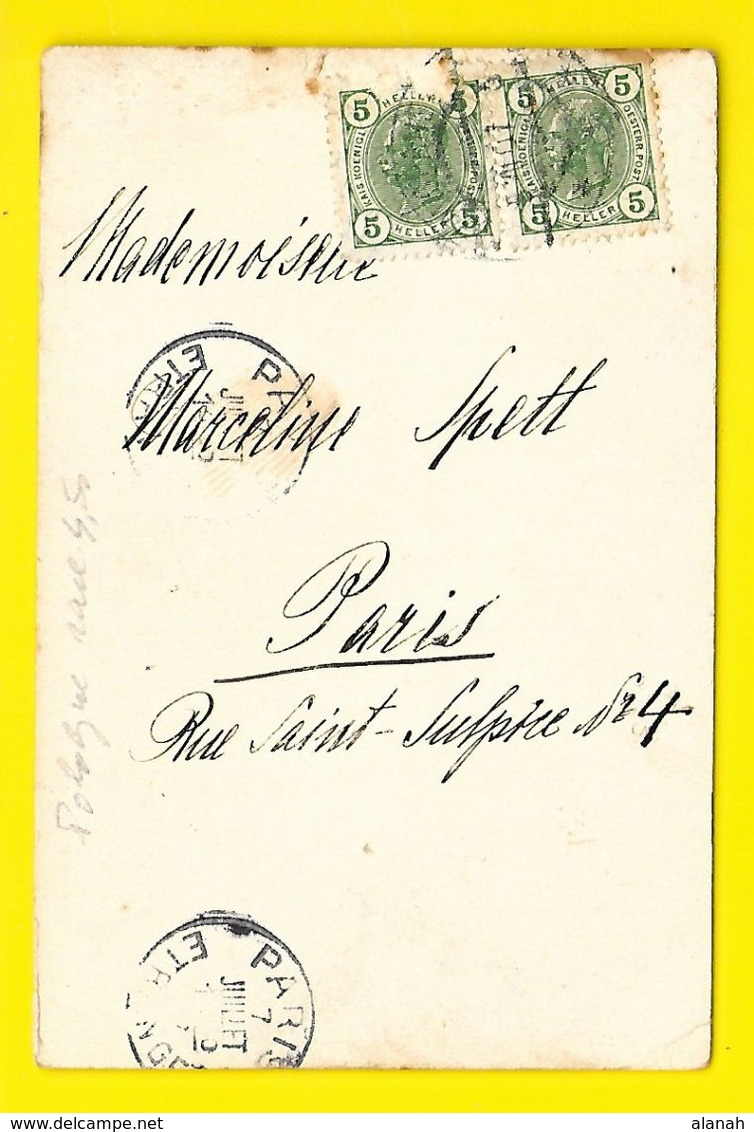 5 HELLER 5
KAIS. KOENIGL. OESTERR. POST.
5 HELLER 5
5 HELLER 5
KAIS. KOENIGL. OESTERR. POST.
5 HELLER 5
Mademoiselle
PARIS ETR
Marceline Spett
Paris
Rue Saint-Sulpice Nr 4
Pologne rare 4,50
PARIS ETRANGER
7
JUILLET
delcampe.net
alanah